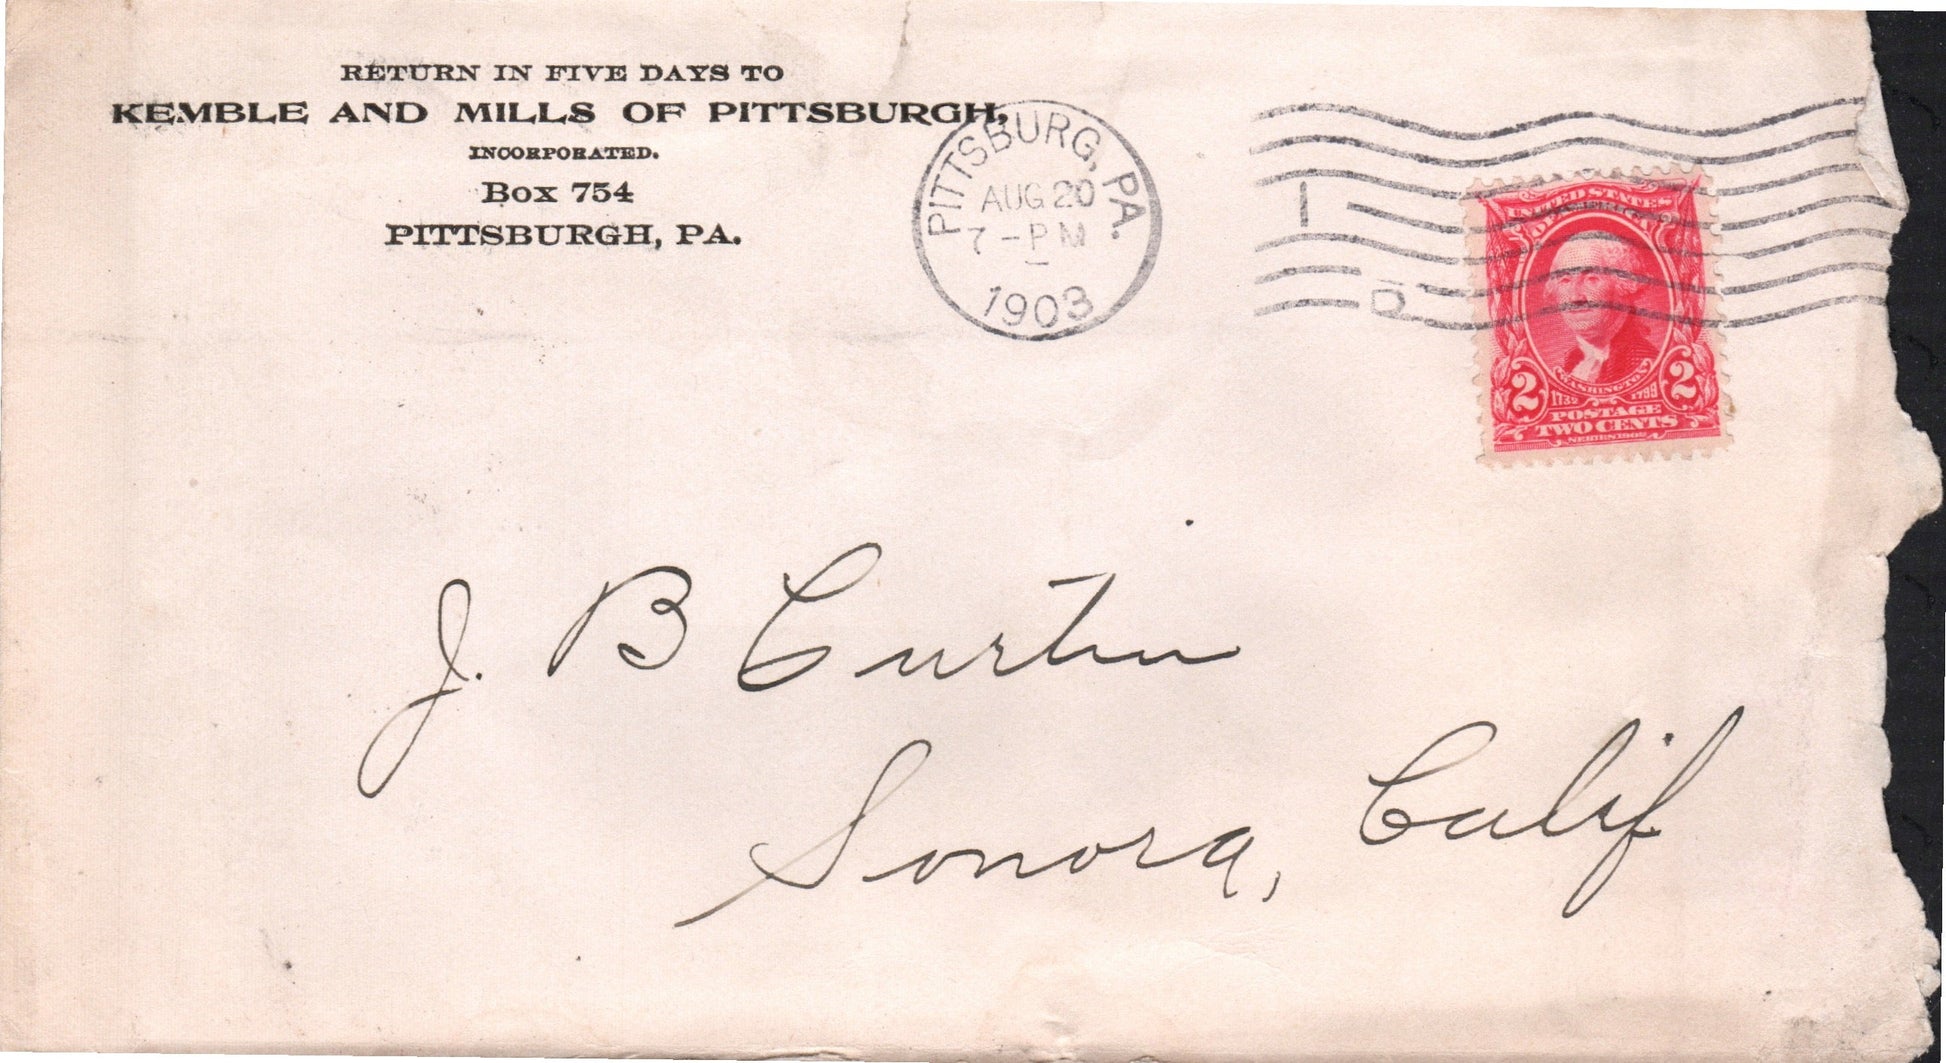 RETURN IN FIVE DAYS TO
KEMBLE AND MILLS OF PITTSBURGH,
INCORPORATED.
Box 754
PITTSBURGH, PA.
PITTSBURG, PA.
AUG 20
7 - PM
1903
1
D
UNITED STATES
OF AMERICA
WASHINGTON
1732 1799
2 2
POSTAGE
TWO CENTS
SERIES 1902
J. B Curtin
Sonora, Calif